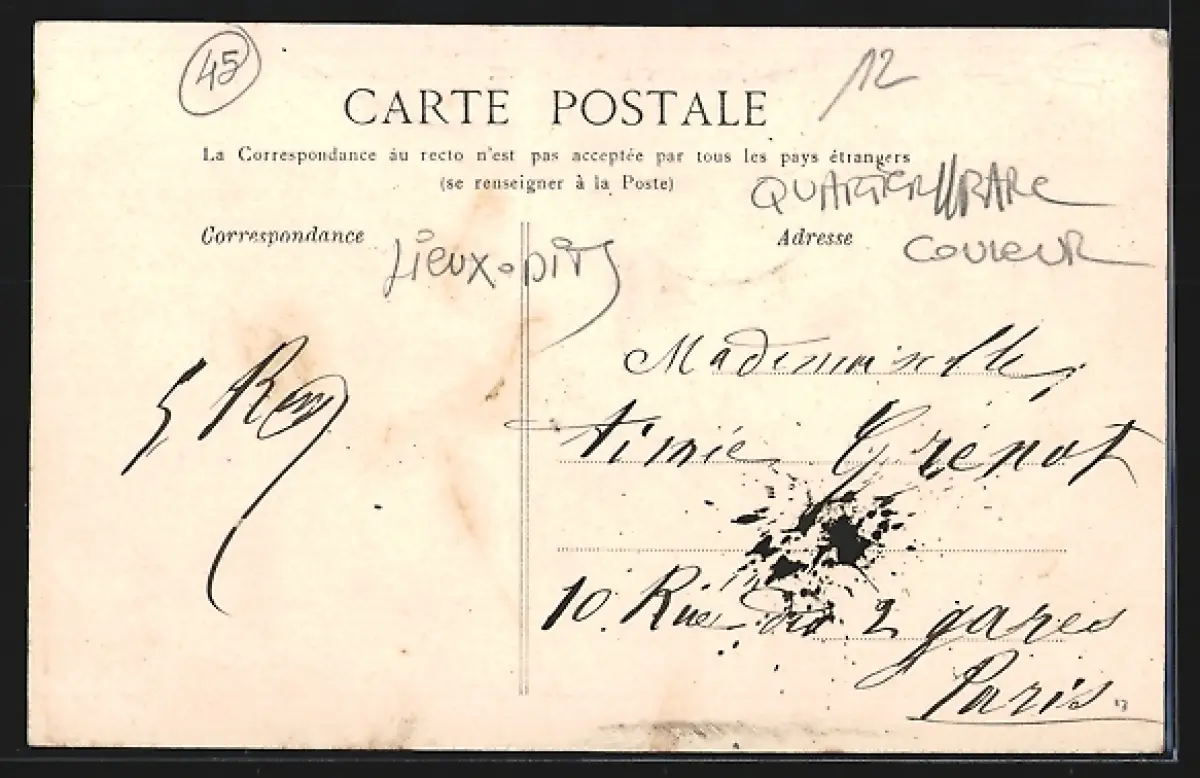 45
12
CARTE POSTALE
La Correspondance au recto n'est pas acceptée par tous les pays étrangers
(se renseigner à la Poste)
QUARTIER RARE
Correspondance
Adresse
COULEUR
Lieux-Dits
Mademoiselle
Aimée Grenot
10 Rue des 2 gares
Paris